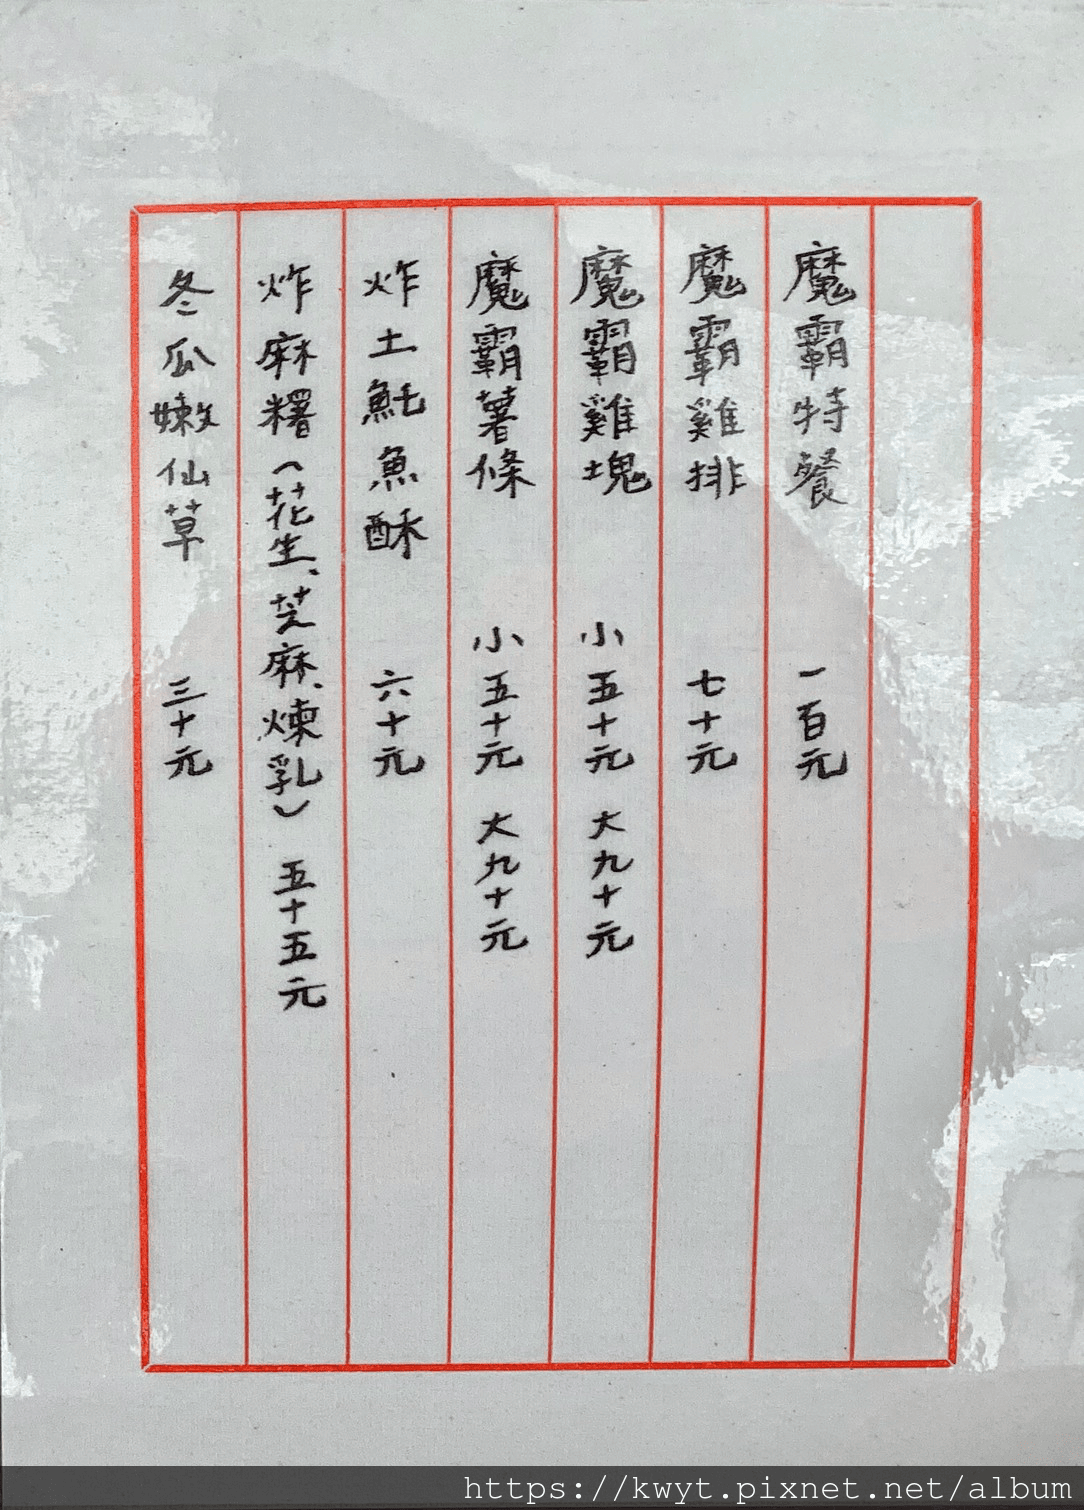 魔霸特餐 一百元
魔霸雞排 七十元
魔霸雞塊 小五十元 大九十元
魔霸薯條 小五十元 大九十元
炸土魠魚酥 六十元
炸麻糬(花生、芝麻、煉乳) 五十五元
冬瓜嫩仙草 三十元
https://kwyt.pixnet.net/album